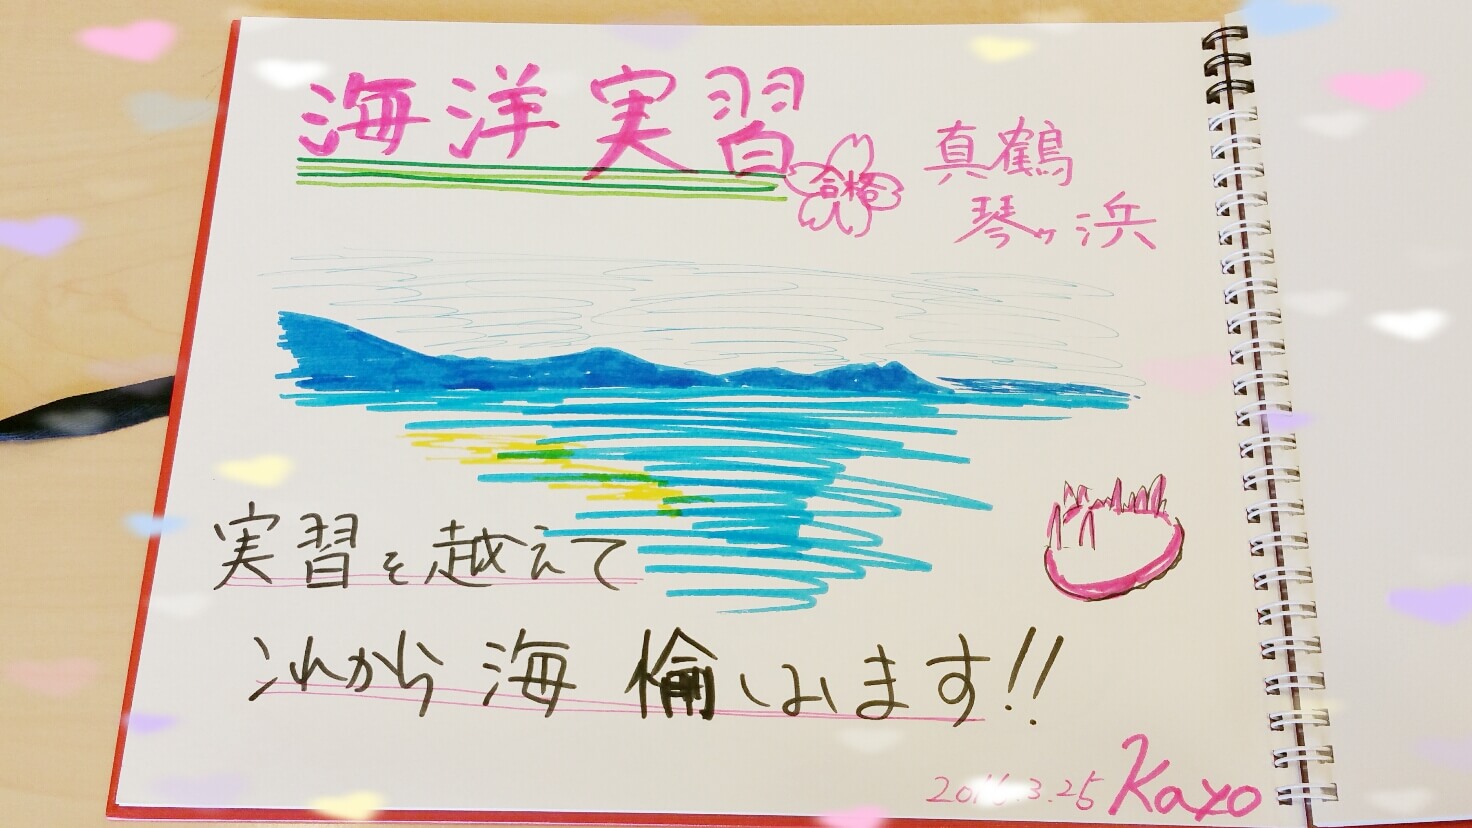 海洋実習
合格
真鶴
琴ヶ浜
実習を越えて
これから海愉しみます!!
2016.3.25 Kayo